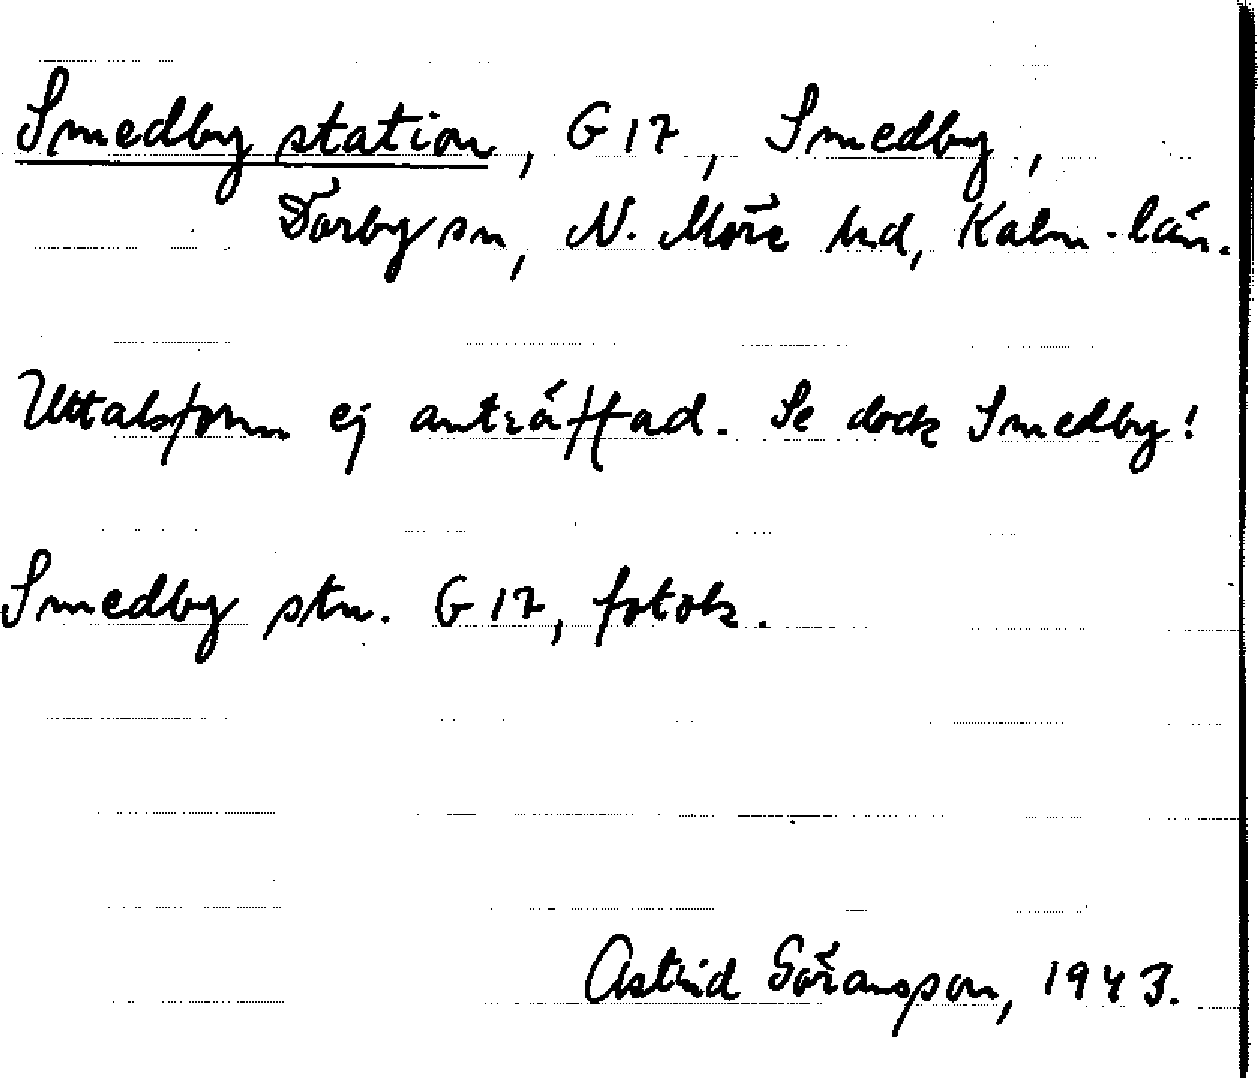 Smedby station, G 17, Smedby,
Dörby sn, N. Möre hd, Kalm. län.
Uttalsform ej anträffad. Se dock Smedby!
Smedby stn. G 17, fotok.
Astrid Göransson, 1943.